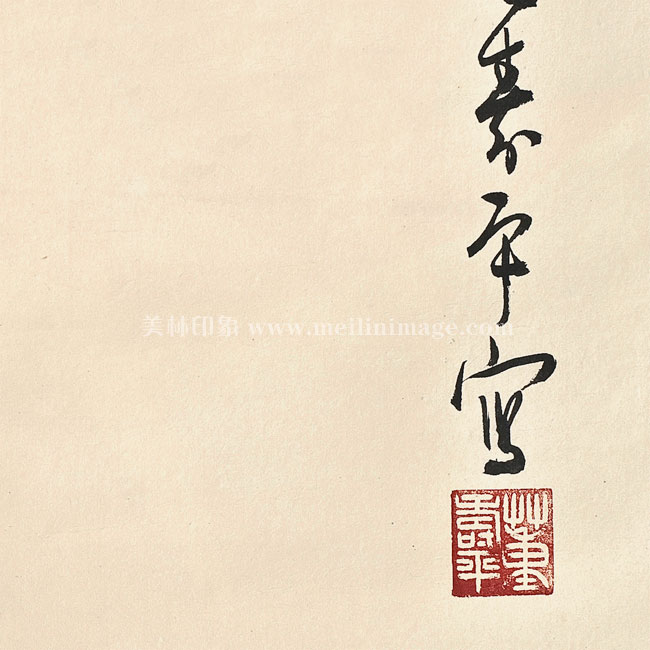 寿平写
董寿平
美林印象 www.meilinimage.com